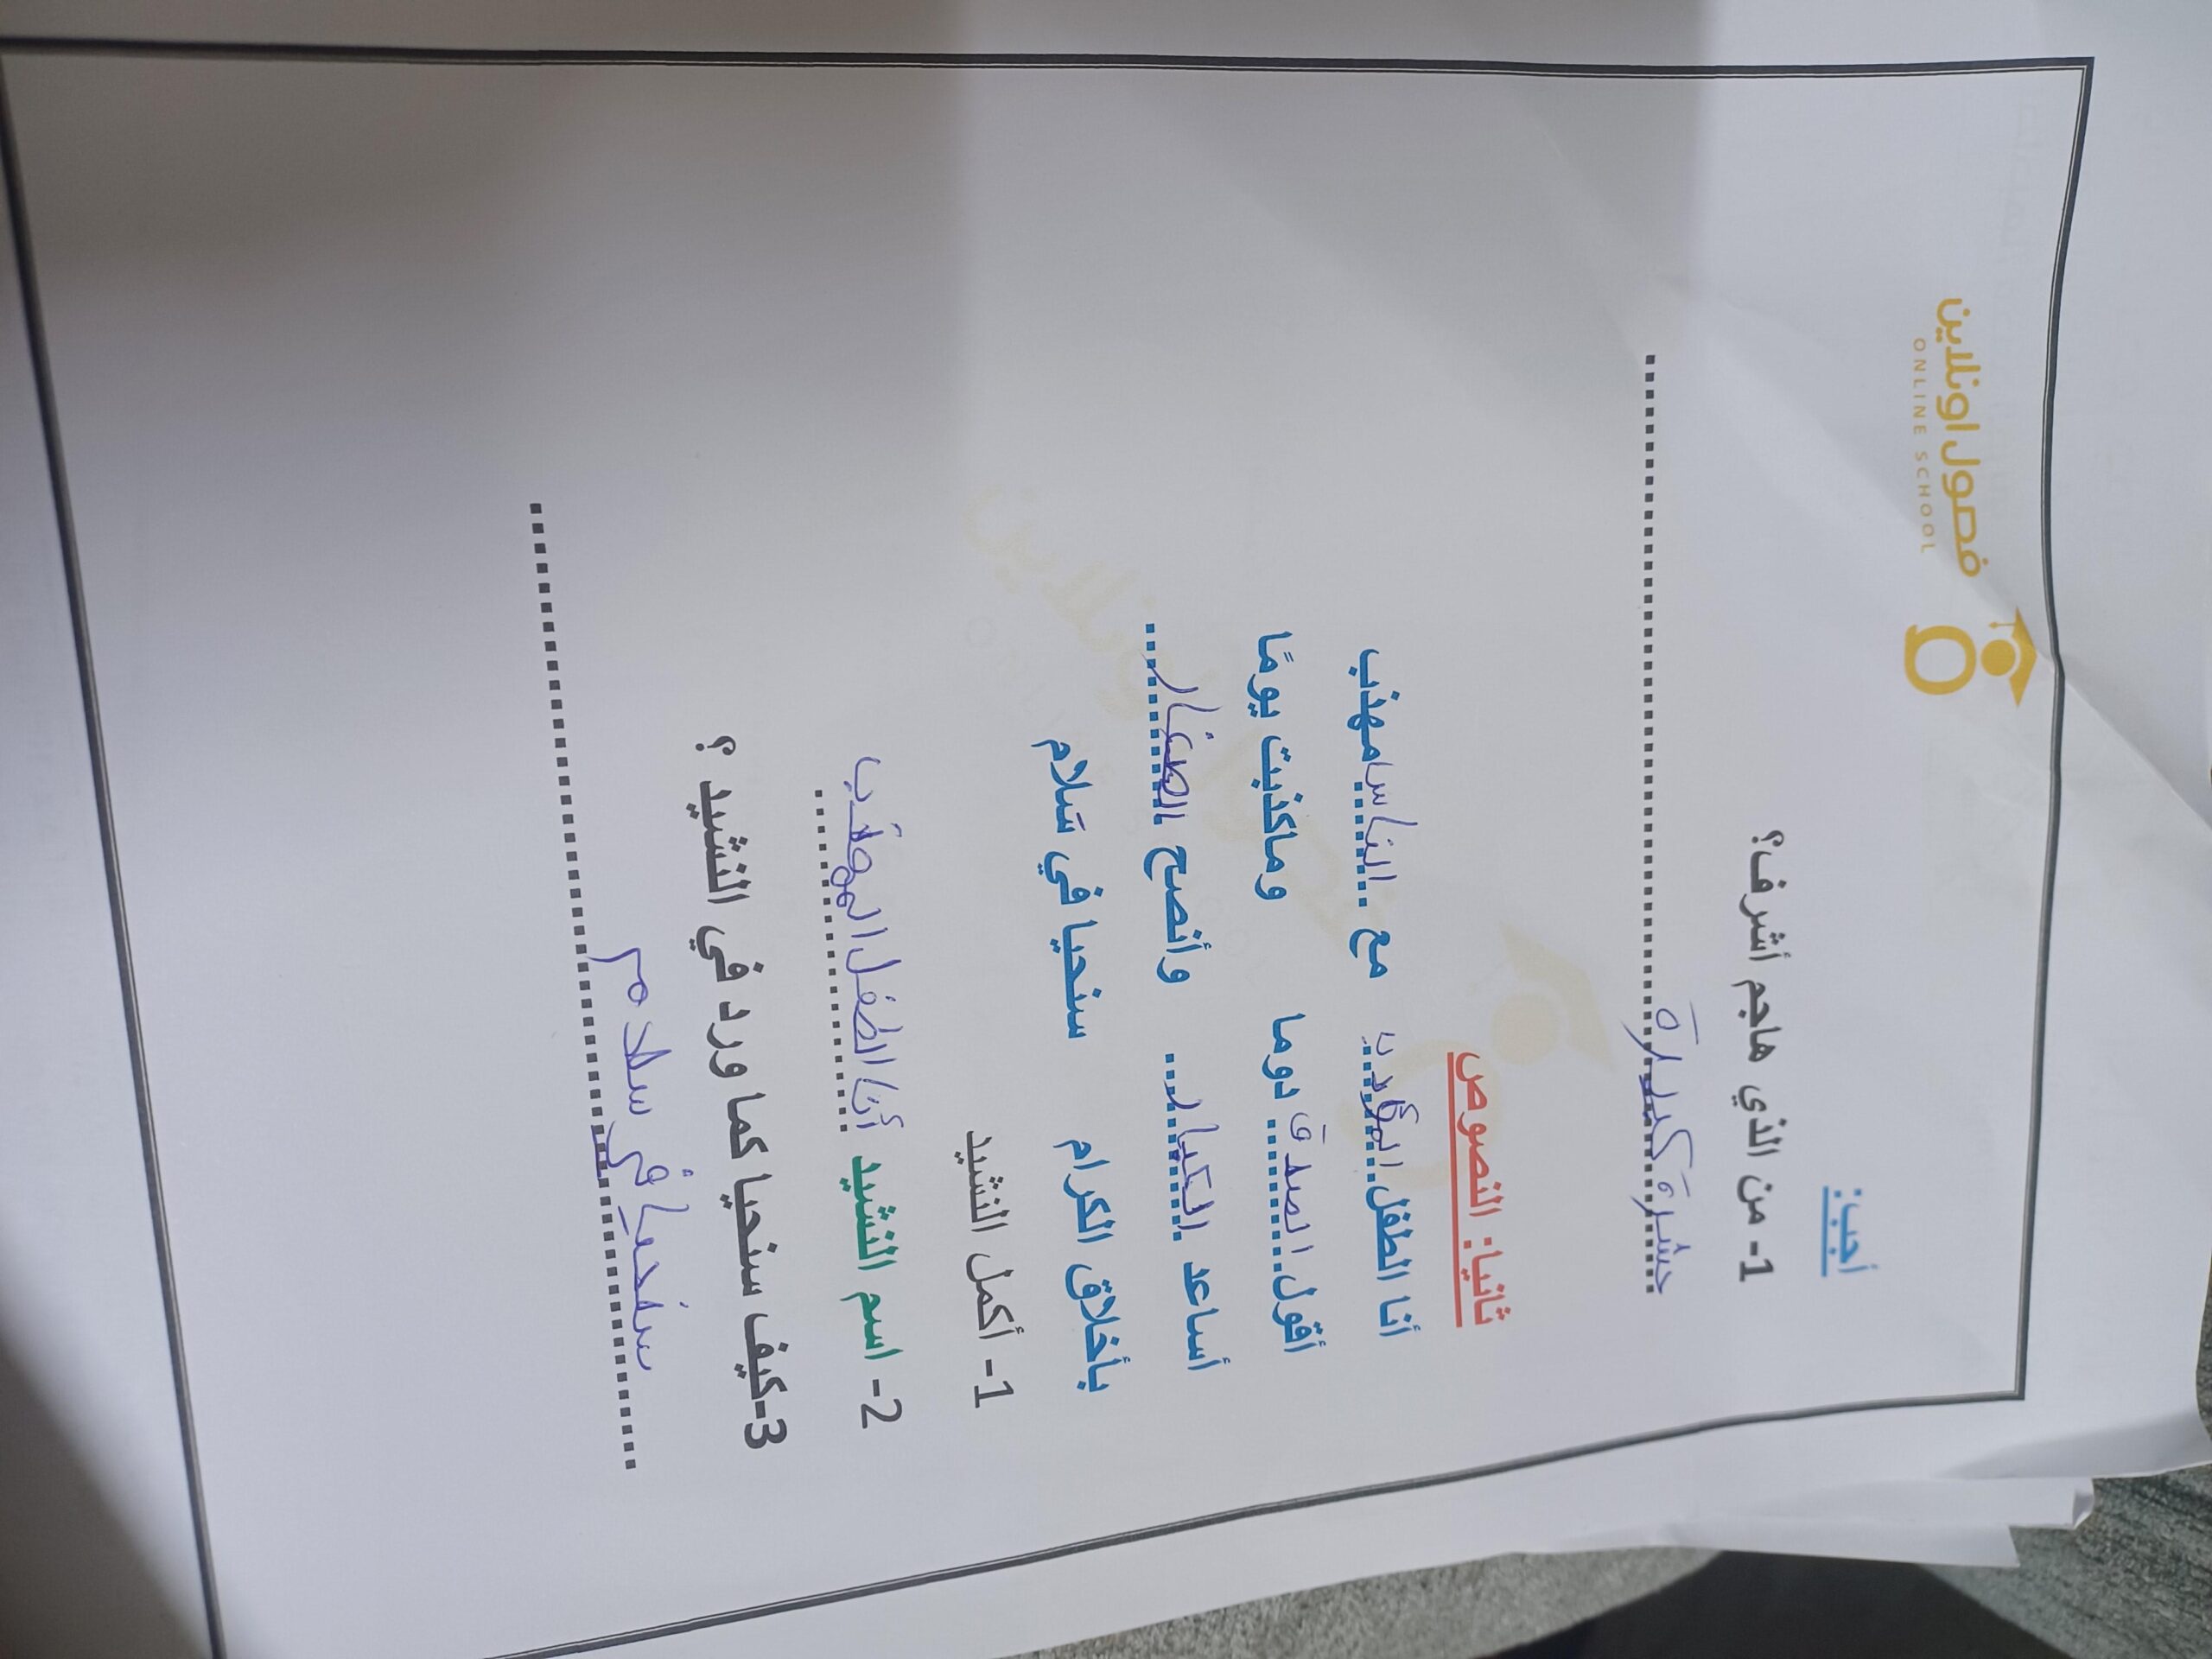 فصول اونلاين
ONLINE SCHOOL
أجب:
1- من الذي هاجم أشرف؟
حشرة كبيرة
ثانيا: النصوص
أنا الطفل المؤدب مع الناس مهذب
أقول الصدق دوما وماكذبت يومًا
أساعد الكبار وأنصح الصغار
بأخلاق الكرام سنحيا في سَلام
1- أكمل النشيد
2- اسم النشيد أنا الطفل المهذب
3-كيف سنحيا كما ورد في النشيد ؟
سنحيا في سلام